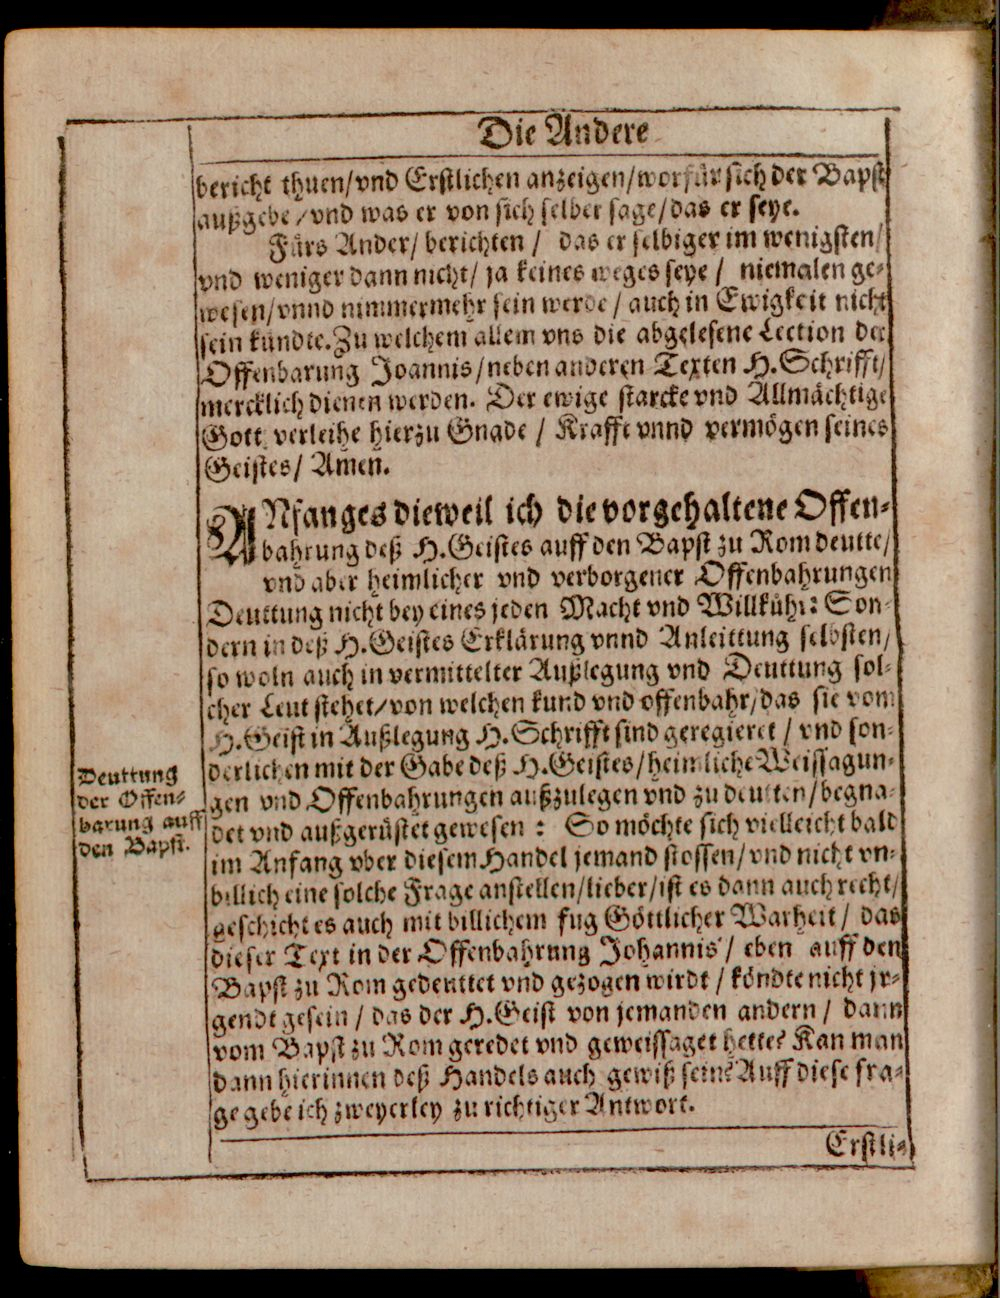 Die Andere
bericht thuen/vnd Erstlichen anzeigen/worfür sich der Bapst
außgebe/vnd was er von sich selber sage/das er seye.
Fürs Ander/ berichten / das er selbiger im wenigsten/
vnd weniger dann nicht/ ja keines weges seye / niemalen ge-
wesen/vnnd nimmermehr sein werde / auch in Ewigkeit nicht
sein kündte. Zu welchem allem vns die abgelesene Lection der
Offenbarung Joannis/neben anderen Texten H. Schrifft/
mercklich dienen werden. Der ewige starcke vnd Allmächtige
Gott verleihe hierzu Gnade / Krafft vnnd vermögen seines
Geistes/ Amen.
ANfanges dieweil ich die vorgehaltene Offen-
bahrung deß H. Geistes auff den Bapst zu Rom deutte/
vnd aber heimlicher vnd verborgener Offenbahrungen
Deuttung nicht bey eines jeden Macht vnd Willkühr: Son-
dern in deß H. Geistes Erklärung vnnd Anleittung selbsten/
so woln auch in vermittelter Außlegung vnd Deuttung sol-
cher Leut stehet/von welchen kund vnd offenbahr/das sie vom
H. Geist in Außlegung H. Schrifft sind geregieret / vnd son-
derlichen mit der Gabe deß H. Geistes/heimliche Weissagun-
gen vnd Offenbahrungen außzulegen vnd zu deutten/begna-
det vnd außgerüstet gewesen : So möchte sich vielleicht bald
im Anfang vber diesem Handel jemand stossen/vnd nicht vn-
billich eine solche Frage anstellen/lieber/ist es dann auch recht/
geschicht es auch mit billichem fug Göttlicher Warheit / das
dieser Text in der Offenbahrung Johannis / eben auff den
Bapst zu Rom gedeuttet vnd gezogen wirdt / köndte nicht jr-
gendt gesein / das der H. Geist von jemanden andern / dann
vom Bapst zu Rom geredet vnd geweissaget hette? Kan man
dann hierinnen deß Handels auch gewiß sein? Auff diese fra-
ge gebe ich zweyerley zu richtiger Antwort.
Deuttung
der Offen-
barung auff
den Bapst.
Erstli-